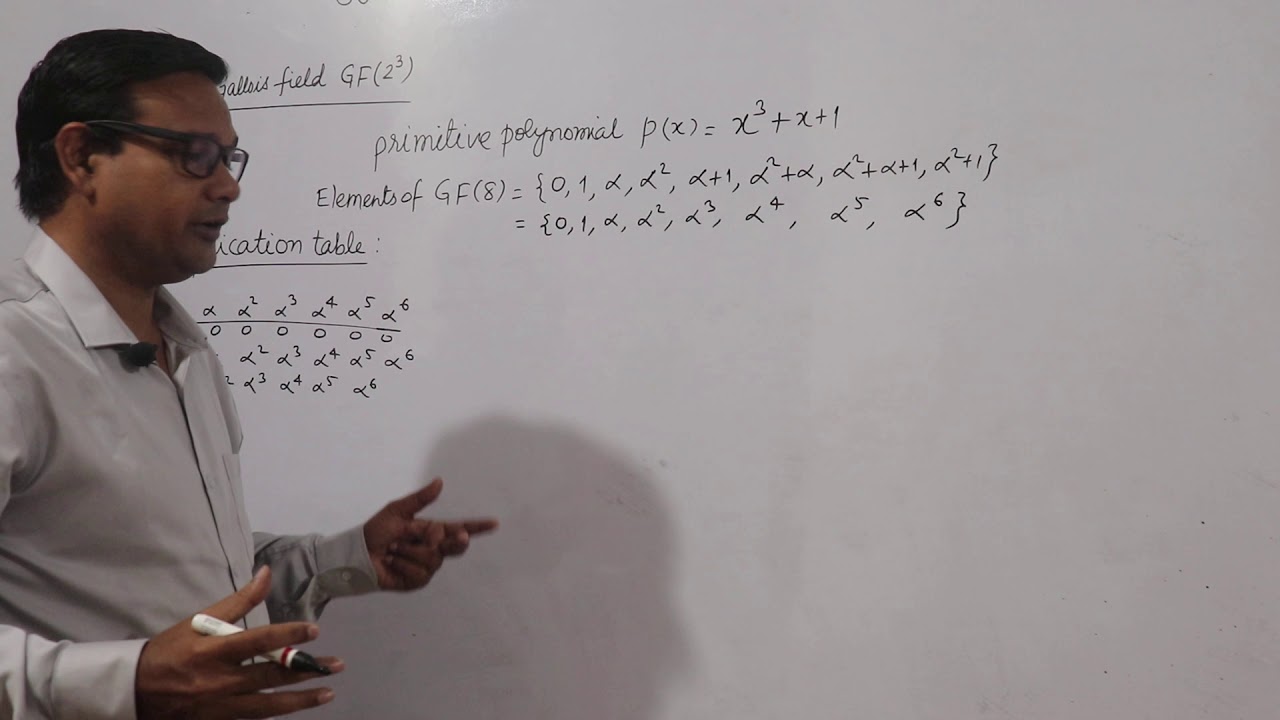 Gallois field GF(2³)
primitive polynomial p(x) = x³+x+1
Elements of GF(8) = {0, 1, α, α², α+1, α²+α, α²+α+1, α²+1}
= {0, 1, α, α², α³, α⁴, α⁵, α⁶}
ication table :
α α² α³ α⁴ α⁵ α⁶
0 0 0 0 0 0
α² α³ α⁴ α⁵ α⁶
² α³ α⁴ α⁵ α⁶